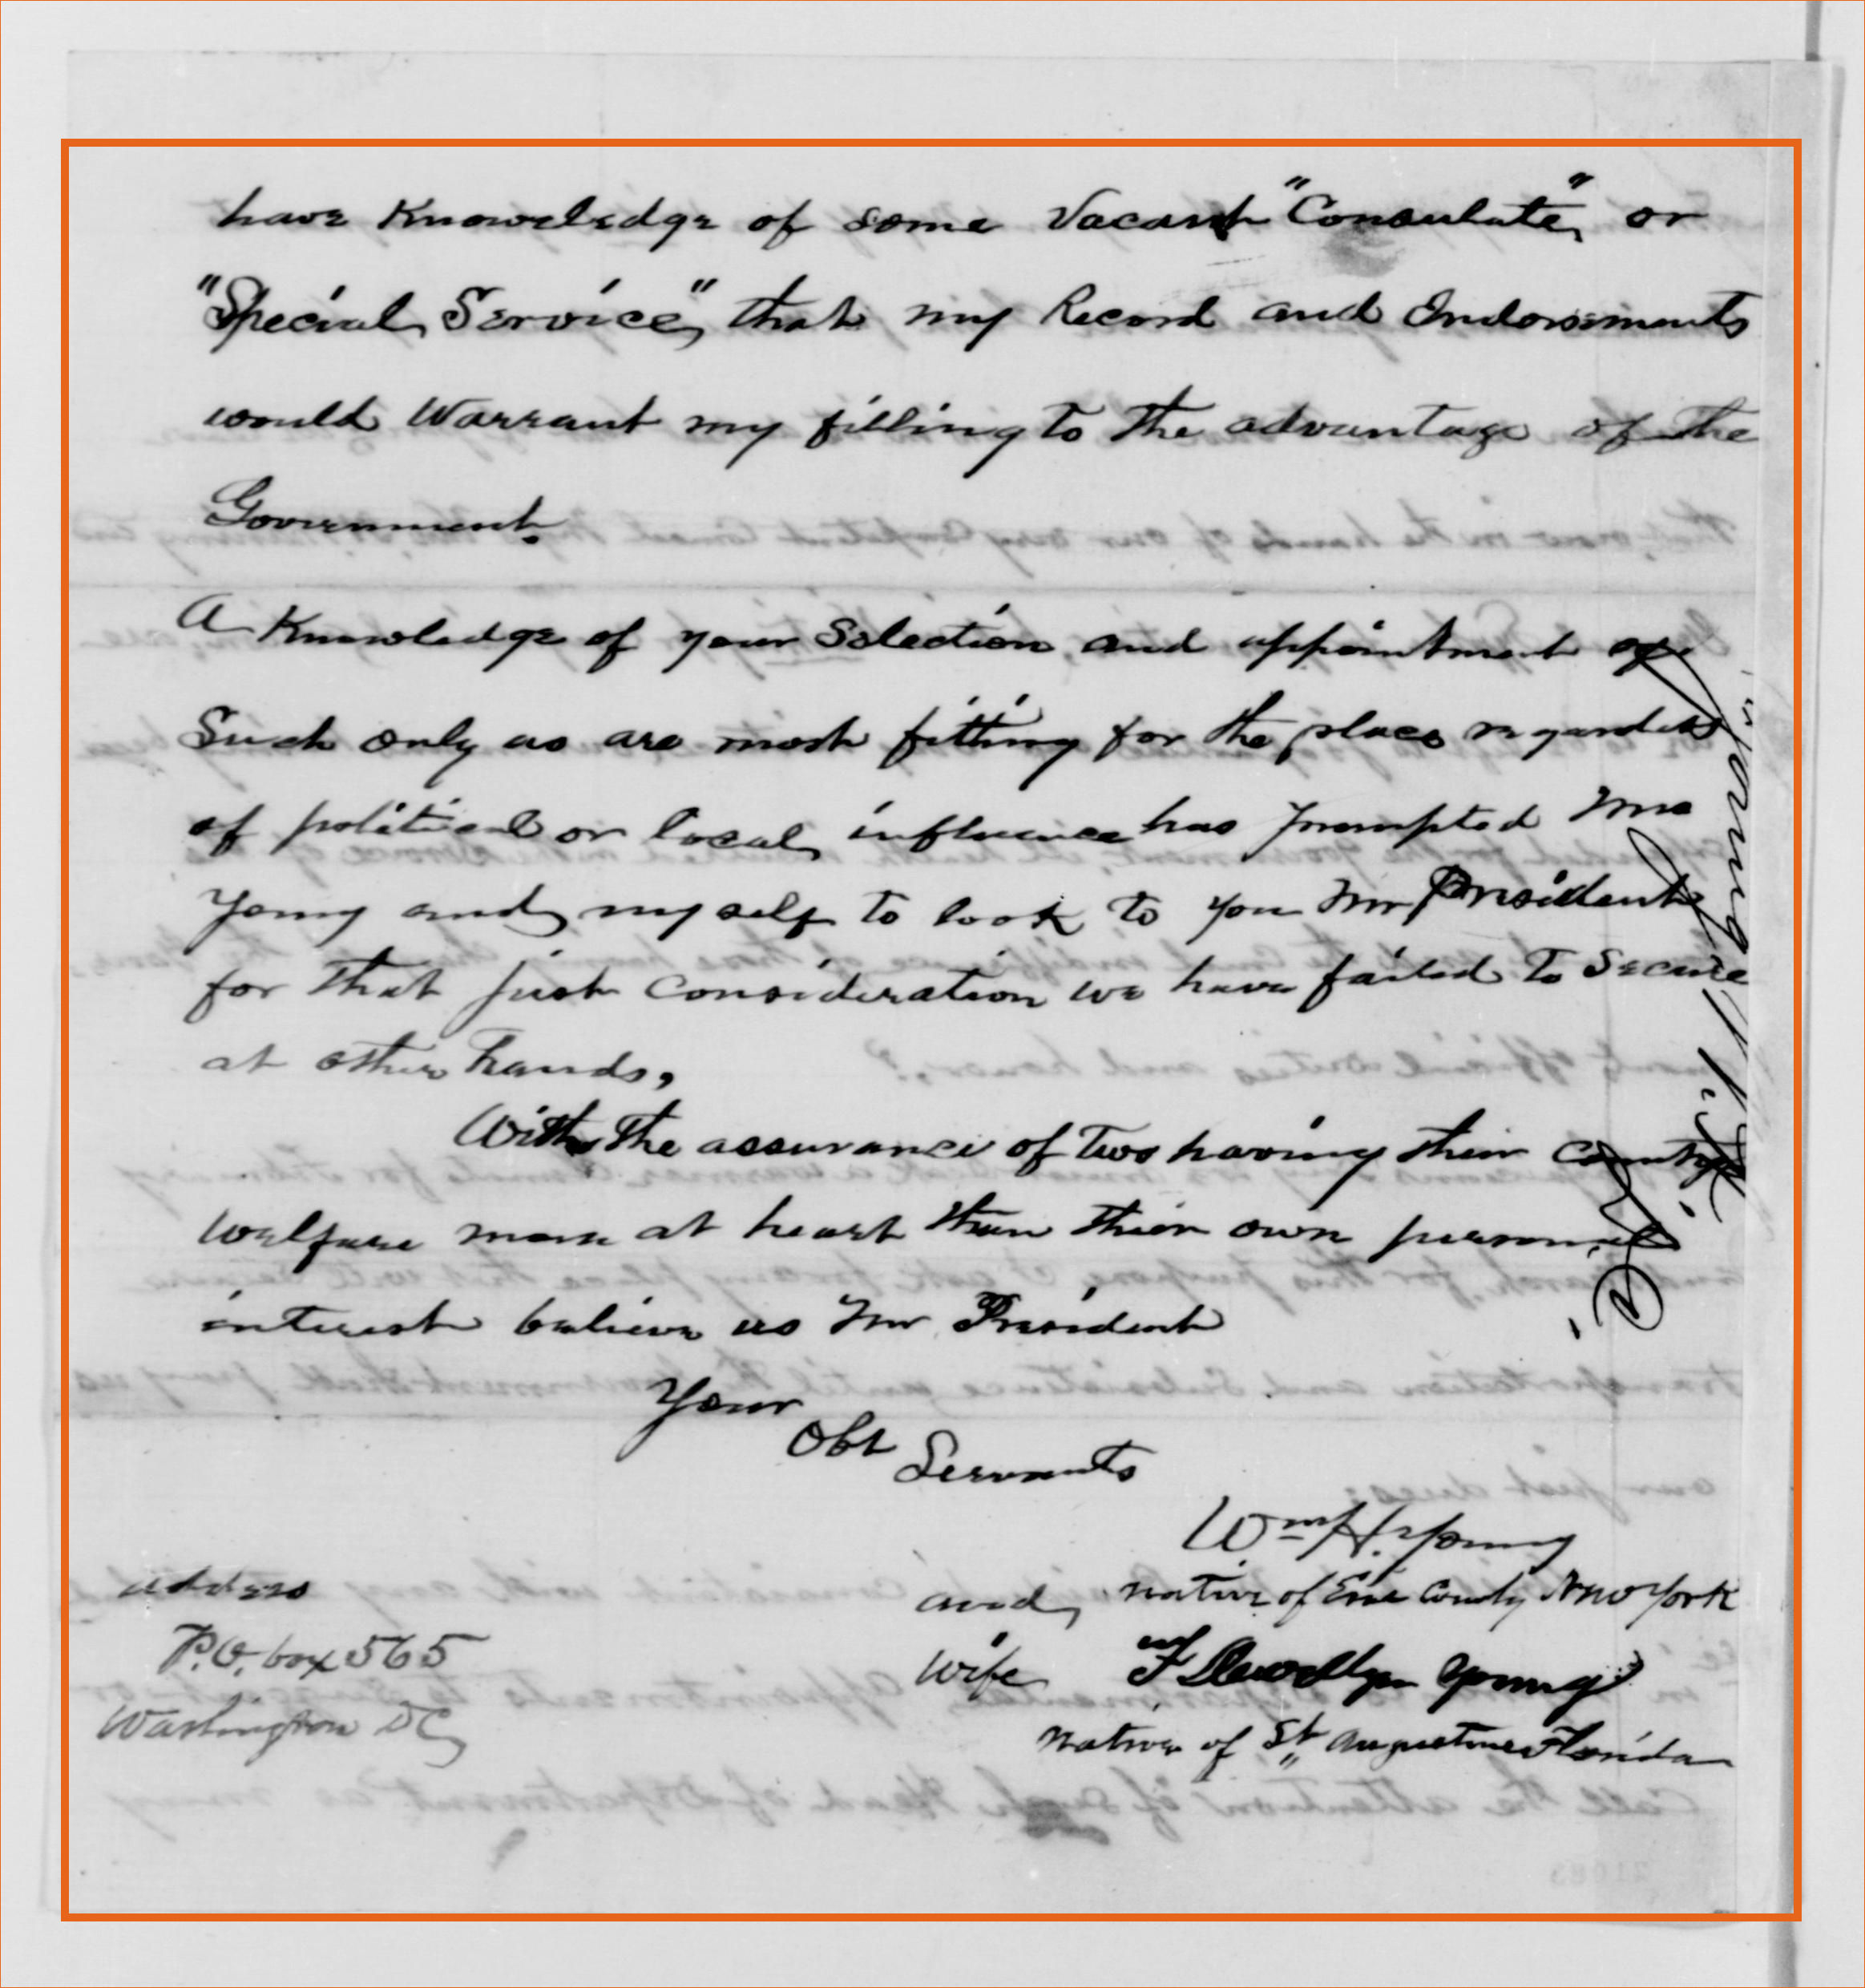 have Knoweledge of some Vacant "Consulate," or
"Special Service," that my Record and Indorsements
would Warrant my filling to the advantage of the
Government.
A Knowledge of your Selection and appointment of
Such only as are most fitting for the place regardless
of political or local influence has prompted Mrs
Young and myself to look to you Mr President
for that just consideration we have failed to secure
at other hands,
With the assurance of Two having their Countrys
welfare more at heart than their own personal
interest believe us Mr President
Your
Obt
Servants
Wm H. Young
and native of Erie County New York
wife F Llewellyn Young
native of St Augustine Florida
address
P.O. box 565
Washington DC
Young